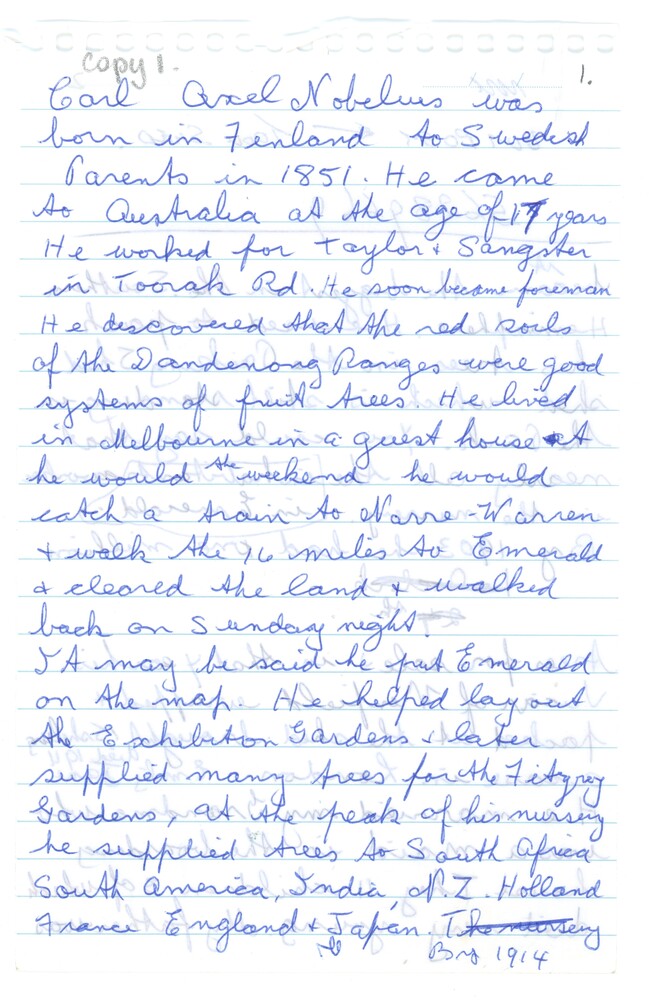 Copy 1.
1.
Carl Axel Nobelius was
born in Fenland to Swedish
Parents in 1851. He came
to Australia at the age of 17 years
He worked for Taylor + Sangster
in Toorak Rd. He soon became foreman
He discovered that the red soils
of the Dandenong Ranges were good
systems of fruit trees. He lived
in Melbourne in a guest house At
he would the weekend he would
catch a train to Narre-Warren
+ walk the 16 miles to Emerald
+ cleared the land + walked
back on Sunday night.
It may be said he put Emerald
on the map. He helped lay out
the Exhibition Gardens + later
supplied many trees for the Fitzroy
Gardens, at the peak of his nursery
he supplied trees to South Africa
South America, India, N.Z. Holland
France England + Japan. The nursery
By 1914